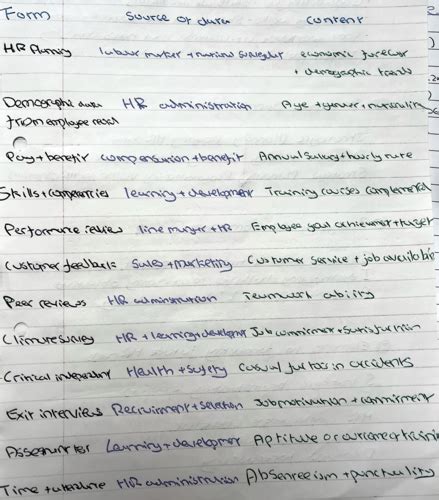 Form source of data content
HR Planning labour market + national economic forecast
+ demographic trends
Demographic data HR administration Age + gender +
from employee
Pay + benefit compensation + benefit Annual salary + hourly rate
Skills + competencies learning + development Training courses completed
Performance review line manger + HR Employee goal achievement + target
Customer feedback Sales + marketing Customer service + job
Peer reviews HR administration Teamwork ability
Climate survey HR + learning + development Job commitment + satisfaction
Critical Health + safety Casual factors in accidents
Exit interviews Recruitment + selection Job motivation + commitment
Learning + development Aptitude or
Time + HR administration Absenteeism + punctuality